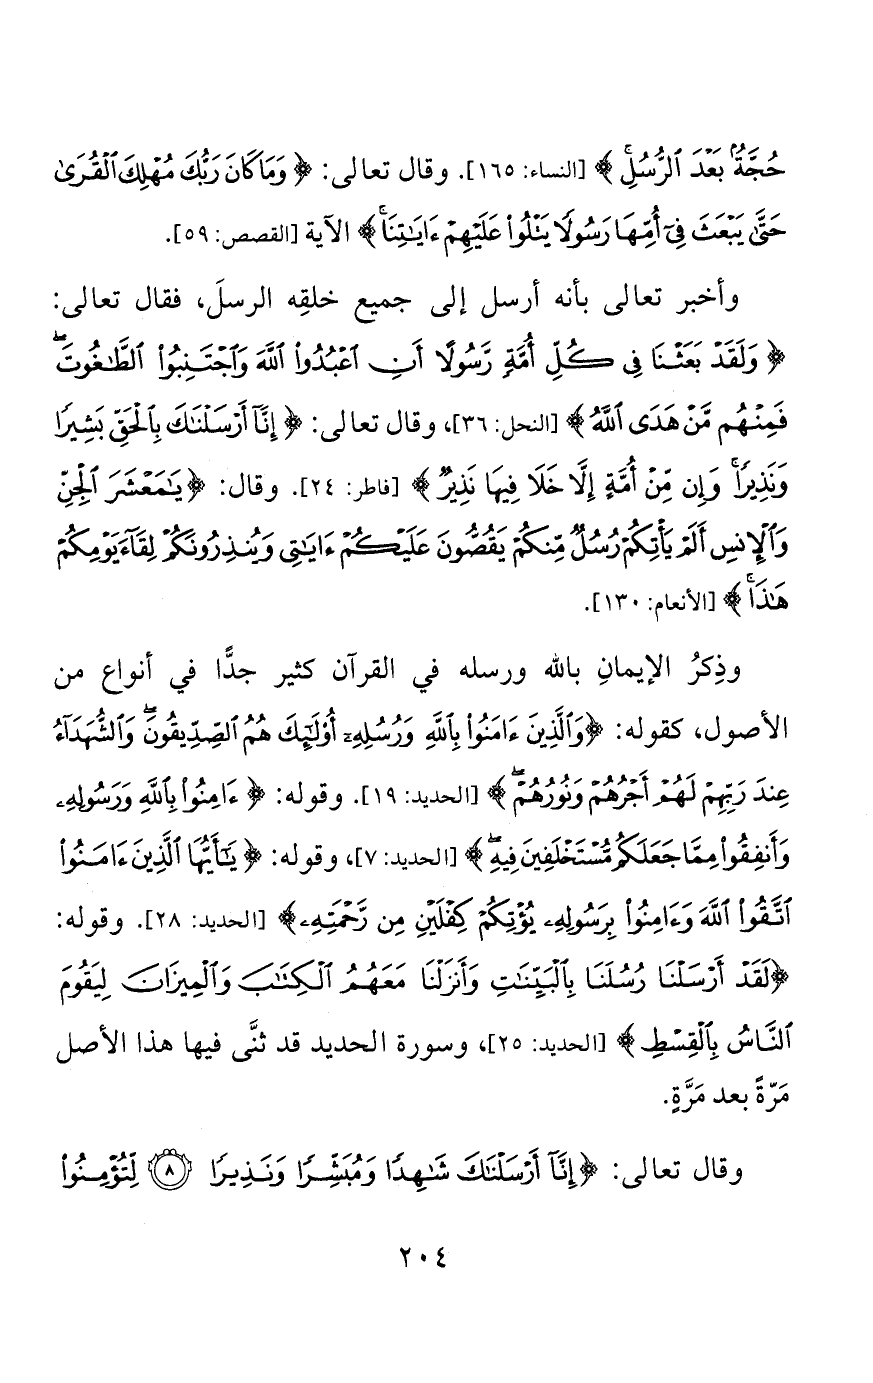 حُجَّةٌۢ بَعْدَ ٱلرُّسُلِۚ ﴾ [النساء: ١٦٥]. وقال تعالى: ﴿ وَمَا كَانَ رَبُّكَ مُهْلِكَ ٱلْقُرَىٰ
حَتَّىٰ يَبْعَثَ فِىٓ أُمِّهَا رَسُولًا يَتْلُوا۟ عَلَيْهِمْ ءَايَٰتِنَاۚ ﴾ الآية [القصص: ٥٩].
وأخبر تعالى بأنه أرسل إلى جميع خلقِه الرسلَ، فقال تعالى:
﴿ وَلَقَدْ بَعَثْنَا فِى كُلِّ أُمَّةٍ رَّسُولًا أَنِ ٱعْبُدُوا۟ ٱللَّهَ وَٱجْتَنِبُوا۟ ٱلطَّٰغُوتَۖ
فَمِنْهُم مَّنْ هَدَى ٱللَّهُ ﴾ [النحل: ٣٦]، وقال تعالى: ﴿ إِنَّآ أَرْسَلْنَٰكَ بِٱلْحَقِّ بَشِيرًا
وَنَذِيرًاۚ وَإِن مِّنْ أُمَّةٍ إِلَّا خَلَا فِيهَا نَذِيرٌ ﴾ [فاطر: ٢٤]. وقال: ﴿ يَٰمَعْشَرَ ٱلْجِنِّ
وَٱلْإِنسِ أَلَمْ يَأْتِكُمْ رُسُلٌ مِّنكُمْ يَقُصُّونَ عَلَيْكُمْ ءَايَٰتِى وَيُنذِرُونَكُمْ لِقَآءَ يَوْمِكُمْ
هَٰذَاۚ ﴾ [الأنعام: ١٣٠].
وذِكرُ الإيمانِ بالله ورسله في القرآن كثير جدًّا في أنواع من
الأصول، كقوله: ﴿وَٱلَّذِينَ ءَامَنُوا۟ بِٱللَّهِ وَرُسُلِهِۦٓ أُو۟لَٰٓئِكَ هُمُ ٱلصِّدِّيقُونَۖ وَٱلشُّهَدَآءُ
عِندَ رَبِّهِمْ لَهُمْ أَجْرُهُمْ وَنُورُهُمْۖ ﴾ [الحديد: ١٩]. وقوله: ﴿ ءَامِنُوا۟ بِٱللَّهِ وَرَسُولِهِۦ
وَأَنفِقُوا۟ مِمَّا جَعَلَكُم مُّسْتَخْلَفِينَ فِيهِۖ ﴾ [الحديد: ٧]، وقوله: ﴿ يَٰٓأَيُّهَا ٱلَّذِينَ ءَامَنُوا۟
ٱتَّقُوا۟ ٱللَّهَ وَءَامِنُوا۟ بِرَسُولِهِۦ يُؤْتِكُمْ كِفْلَيْنِ مِن رَّحْمَتِهِۦ ﴾ [الحديد: ٢٨]. وقوله:
﴿لَقَدْ أَرْسَلْنَا رُسُلَنَا بِٱلْبَيِّنَٰتِ وَأَنزَلْنَا مَعَهُمُ ٱلْكِتَٰبَ وَٱلْمِيزَانَ لِيَقُومَ
ٱلنَّاسُ بِٱلْقِسْطِ ﴾ [الحديد: ٢٥]، وسورة الحديد قد ثنَّى فيها هذا الأصل
مَرّةً بعد مَرَّةٍ.
وقال تعالى: ﴿ إِنَّآ أَرْسَلْنَٰكَ شَٰهِدًا وَمُبَشِّرًا وَنَذِيرًا ٨ لِّتُؤْمِنُوا۟
٢٠٤